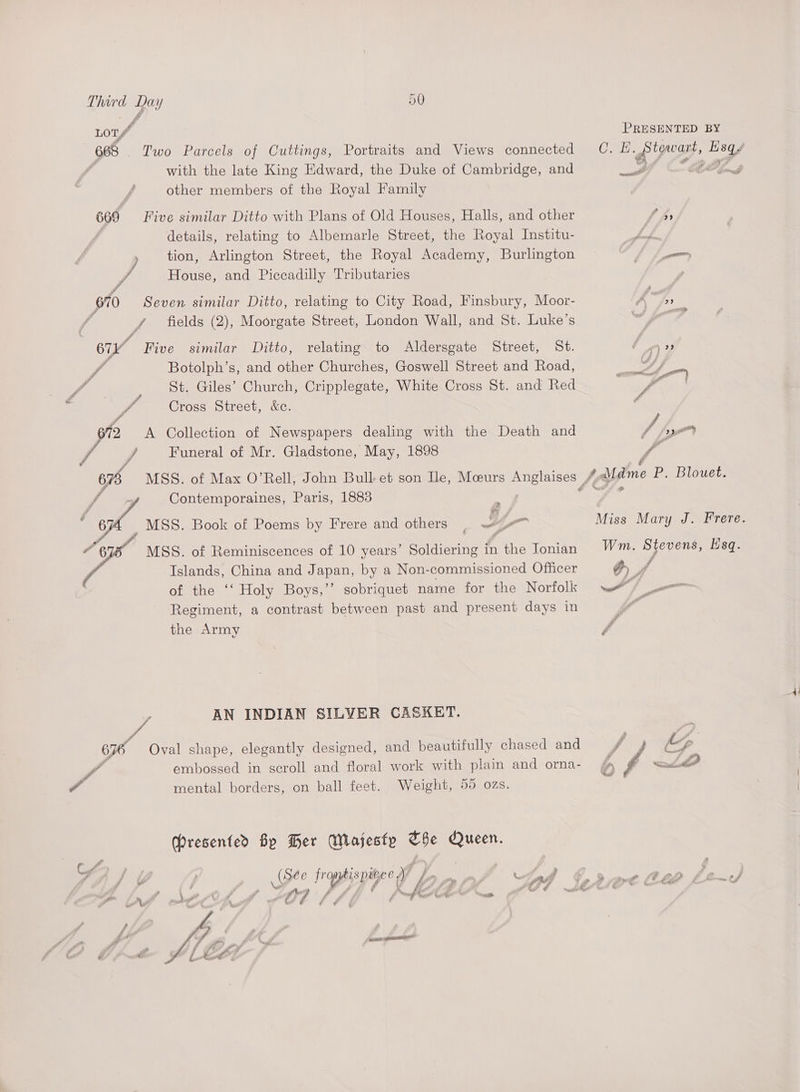 Third Day 50
LOT PRESENTED BY
668 Two Parcels of Cuttings, Portraits and Views connected C. E. Stewart, Esq.
with the late King Edward, the Duke of Cambridge, and
other members of the Royal Family
669 Five similar Ditto with Plans of Old Houses, Halls, and other ,,
details, relating to Albemarle Street, the Royal Institu-
tion, Arlington Street, the Royal Academy, Burlington
House, and Piccadilly Tributaries
670 Seven similar Ditto, relating to City Road, Finsbury, Moor- ,,
fields (2), Moorgate Street, London Wall, and St. Luke's
671 Five similar Ditto, relating to Aldersgate Street, St. ,,
Botolph's, and other Churches, Goswell Street and Road,
St. Giles' Church, Cripplegate, White Cross St. and Red
Cross Street, &c.
672 A Collection of Newspapers dealing with the Death and ,,
Funeral of Mr. Gladstone, May, 1898
673 MSS. of Max O'Rell, John Bull et son Ile, Mœurs Anglaises Mdme P. Blouet.
Contemporaines, Paris, 1883
674 MSS. Book of Poems by Frere and others Miss Mary J. Frere.
675 MSS. of Reminiscences of 10 years' Soldiering in the Ionian Wm. Stevens, Esq.
Islands, China and Japan, by a Non-commissioned Officer
of the "Holy Boys," sobriquet name for the Norfolk
Regiment, a contrast between past and present days in
the Army
AN INDIAN SILVER CASKET.
676 Oval shape, elegantly designed, and beautifully chased and
embossed in scroll and floral work with plain and orna-
mental borders, on ball feet. Weight, 55 ozs.
Presented by Her Majesty The Queen.
(See frontispiece)